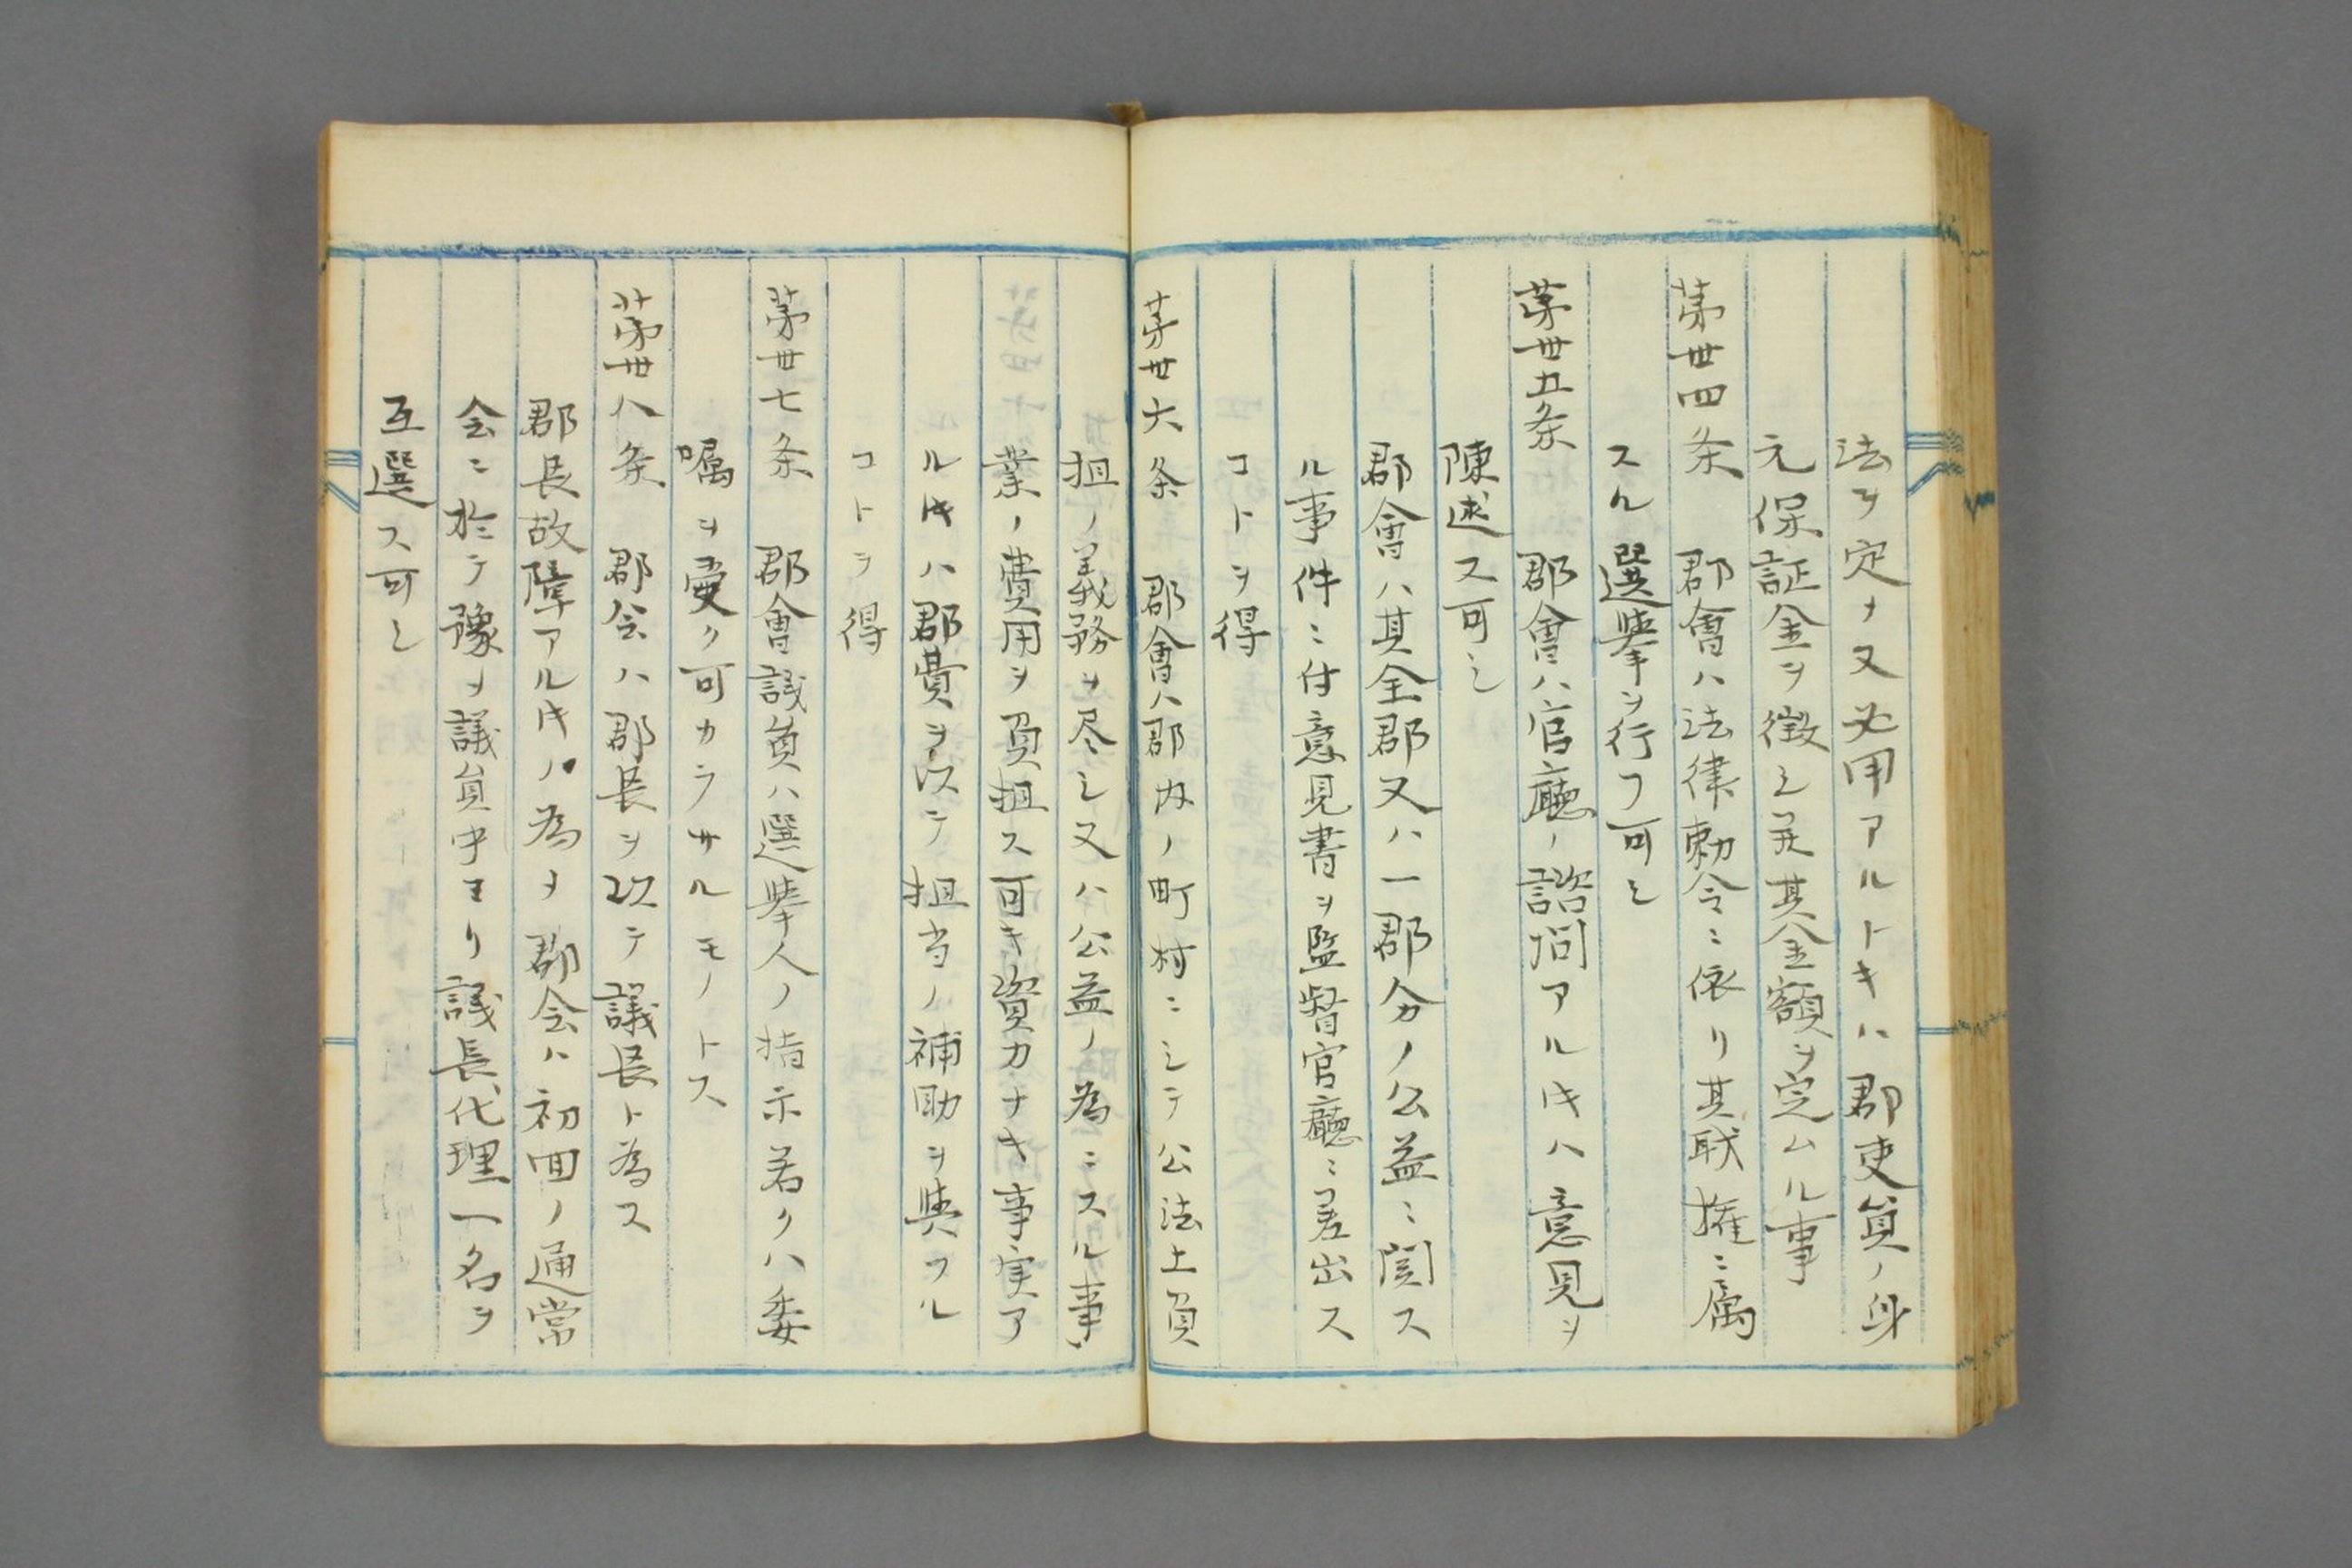 法ヲ定メ又必用アルトキハ郡吏員ノ身
元保証金ヲ徴シ並其金額ヲ定ムル事
第卅四条 郡會ハ法律勅令ニ依リ其職権ニ属
スル選挙ヲ行フ可シ
第卅五条 郡會ハ官廳ノ諮問アルトキハ意見ヲ
陳述ス可シ
郡會ハ其全郡又ハ一郡分ノ公益ニ関ス
ル事件ニ付意見書ヲ監督官廳ニ差出ス
コトヲ得
第卅六条 郡會ハ郡内ノ町村ニシテ公法上負
担ノ義務ヲ尽シ又ハ公益ノ為ニスル事
業ノ費用ヲ負担ス可キ資力ナキ事実ア
ルトキハ郡費ヲ以テ担当ノ補助ヲ與フル
コトヲ得
第卅七条 郡會議員ハ選挙人ノ指示若クハ委
嘱ヲ受ク可カラサルモノトス
第卅八条 郡会ハ郡長ヲ以テ議長ト為ス
郡長故障アルトキノ為メ郡会ハ初回ノ通常
会ニ於テ豫メ議員中ヨリ議長代理一名ヲ
互選ス可シ